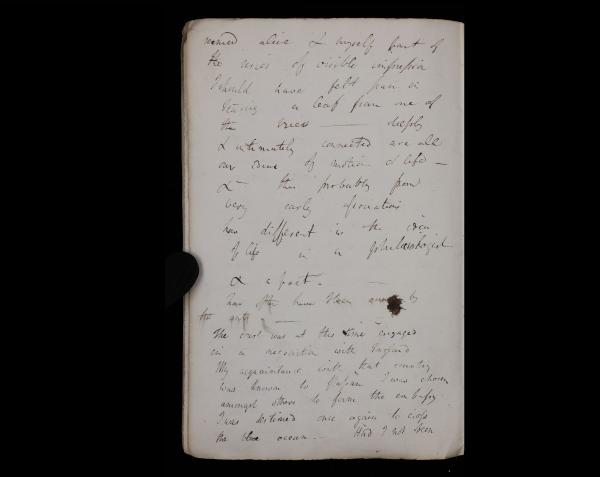 seemed alive & myself part of
the series of visible impression
I should have felt pain in
tearing a leaf from one of
the trees — deeply
& intimately connected are all
our ideas of motion & life —
& this probably from
very early association
how different is the idea
of life in a physiologist
& a poet. —
how often have been by
the
The court was at this time engaged
in a negociation with England
My acquaintance with that country
was known to I was chosen
amongst others to form the embassy
I was destined once again to cross
the blue ocean. — Had I not been